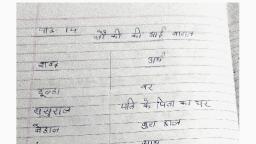 पाठ 14 चींटी की आई बारात
शब्द अर्थ
दूल्हा वर
ससुराल पति के पिता का घर
बेहाल बुरा हाल